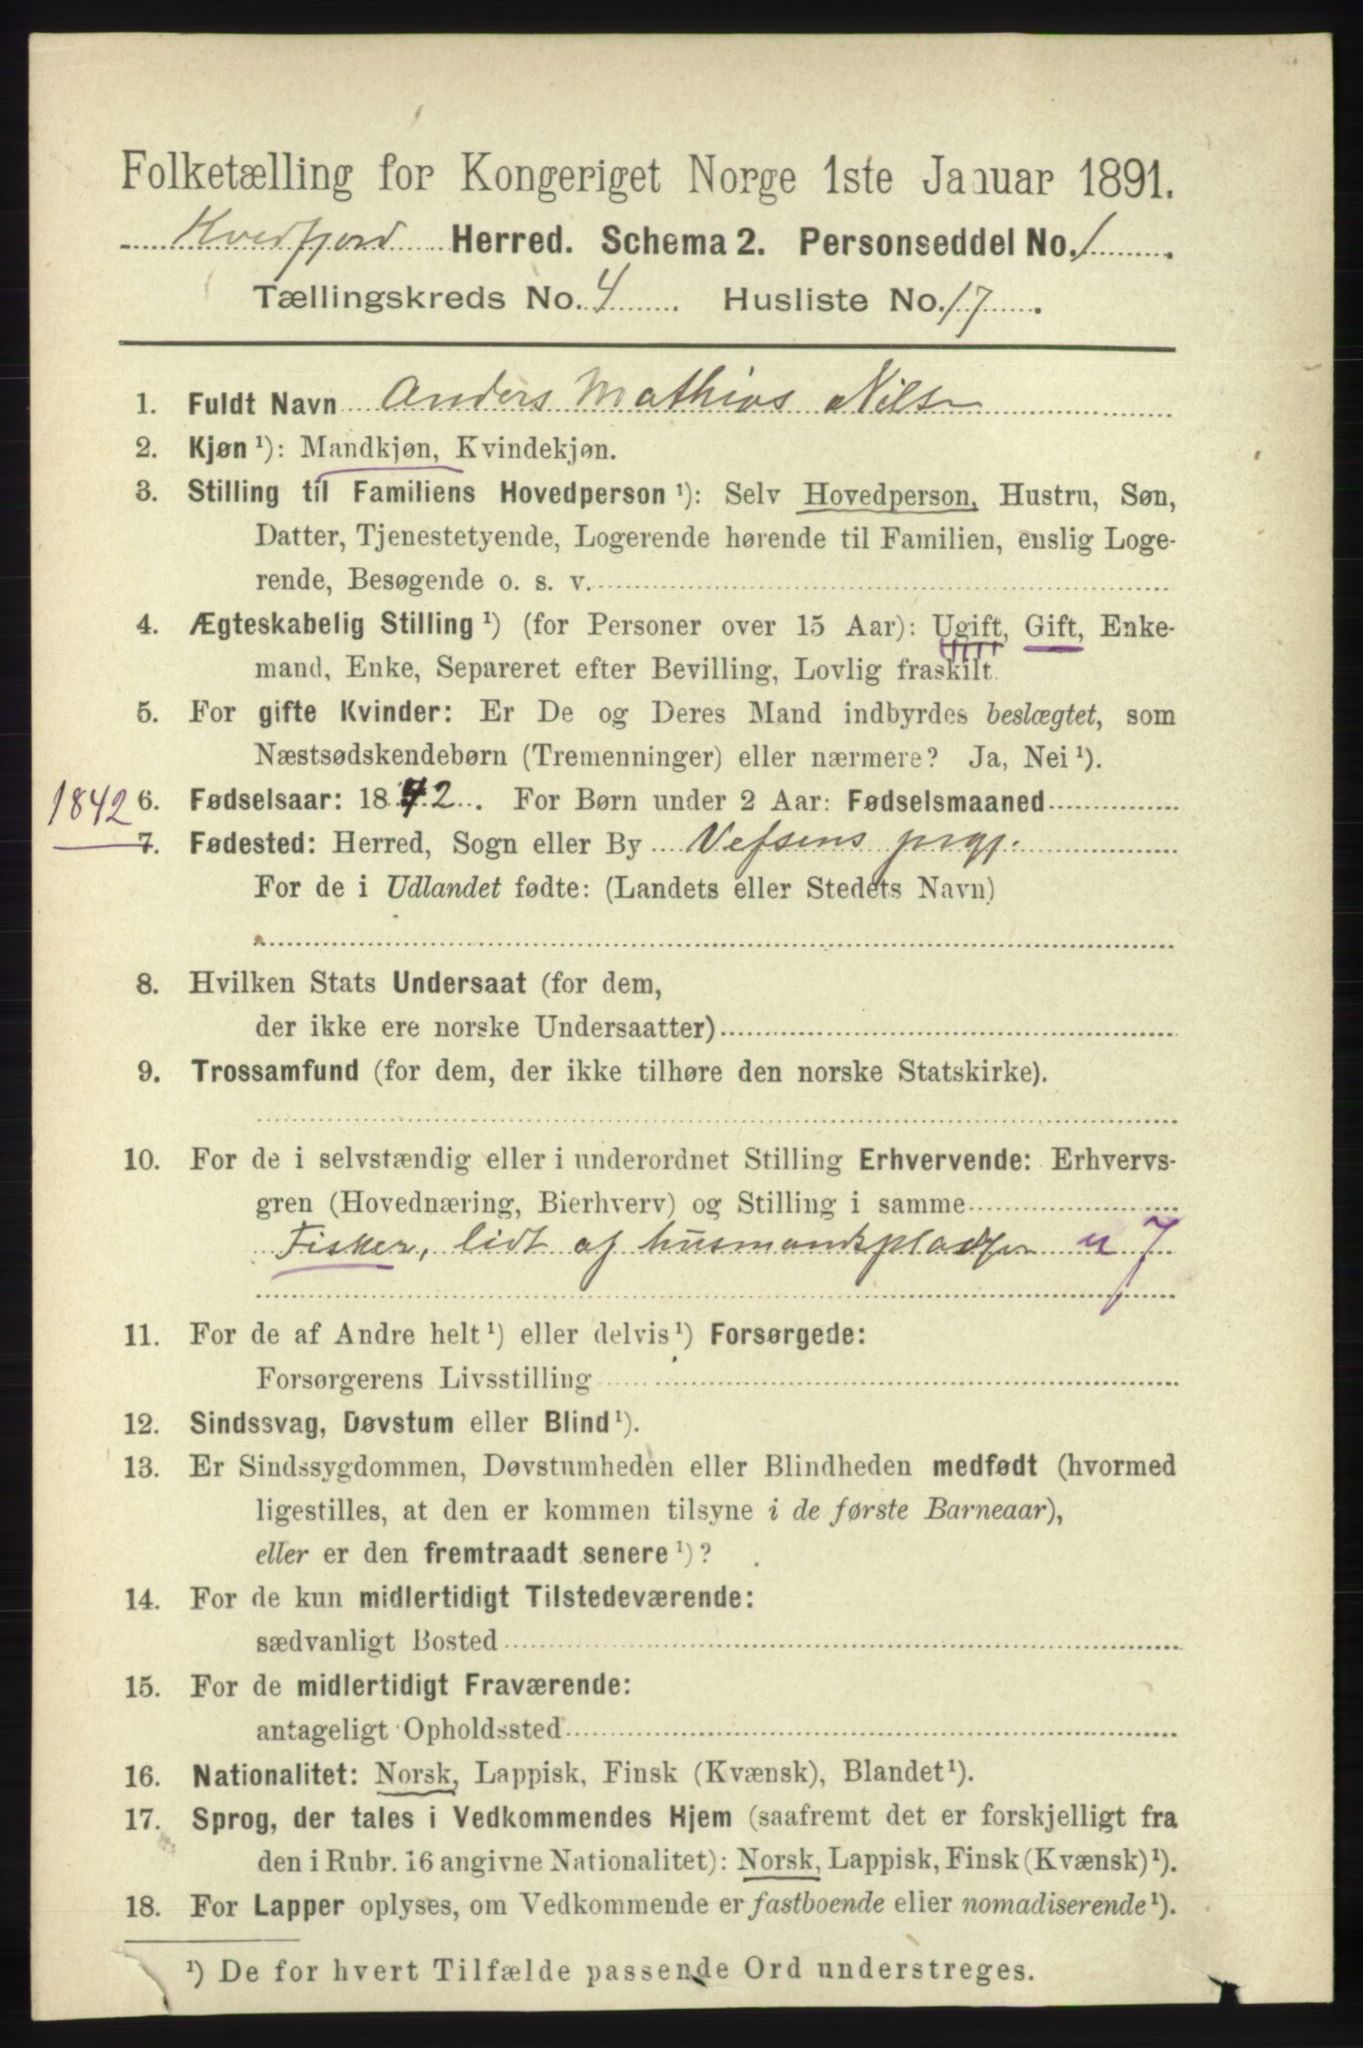 Folketælling for Kongeriget Norge 1ste Januar 1891.
Kvedfjord Herred. Schema 2. Personseddel No. 1.
Tællingskreds No. 4. Husliste No. 17.
1. Fuldt Navn Anders Mathias Nilsn
2. Kjøn ¹): Mandkjøn, Kvindekjøn.
3. Stilling til Familiens Hovedperson ¹): Selv Hovedperson, Hustru, Søn,
Datter, Tjenestetyende, Logerende hørende til Familien, enslig Loge-
rende, Besøgende o. s. v.
4. Ægteskabelig Stilling ¹) (for Personer over 15 Aar): Ugift, Gift, Enke-
mand, Enke, Separeret efter Bevilling, Lovlig fraskilt.
5. For gifte Kvinder: Er De og Deres Mand indbyrdes beslægtet, som
Næstsødskendebørn (Tremenninger) eller nærmere? Ja, Nei ¹).
1842 6. Fødselsaar: 1842. For Børn under 2 Aar: Fødselsmaaned
7. Fødested: Herred, Sogn eller By Vefsens prgj.
For de i Udlandet fødte: (Landets eller Stedets Navn)
8. Hvilken Stats Undersaat (for dem,
der ikke ere norske Undersaatter)
9. Trossamfund (for dem, der ikke tilhøre den norske Statskirke).
10. For de i selvstændig eller i underordnet Stilling Erhvervende: Erhvervs-
gren (Hovednæring, Bierhverv) og Stilling i samme
Fisker, lidt af husmandspladsen u 7
11. For de af Andre helt ¹) eller delvis ¹) Forsørgede:
Forsørgerens Livsstilling
12. Sindssvag, Døvstum eller Blind ¹).
13. Er Sindssygdommen, Døvstumheden eller Blindheden medfødt (hvormed
ligestilles, at den er kommen tilsyne i de første Barneaar),
eller er den fremtraadt senere ¹)?
14. For de kun midlertidigt Tilstedeværende:
sædvanligt Bosted
15. For de midlertidigt Fraværende:
antageligt Opholdssted
16. Nationalitet: Norsk, Lappisk, Finsk (Kvænsk), Blandet ¹).
17. Sprog, der tales i Vedkommendes Hjem (saafremt det er forskjelligt fra
den i Rubr. 16 angivne Nationalitet): Norsk, Lappisk, Finsk (Kvænsk) ¹).
18. For Lapper oplyses, om Vedkommende er fastboende eller nomadiserende ¹).
¹) De for hvert Tilfælde passende Ord understreges.